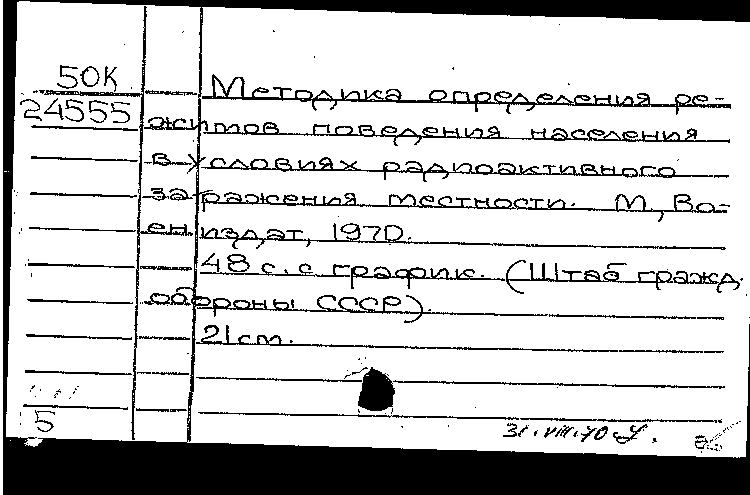 50К
24555
Методика определения ре-
жимов поведения населения
в условиях радиоактивного
заражения местности. М, Во-
ениздат, 1970.
48 с. с график. (Штаб гражд.
обороны СССР).
21 см.
5
31.VIII.70